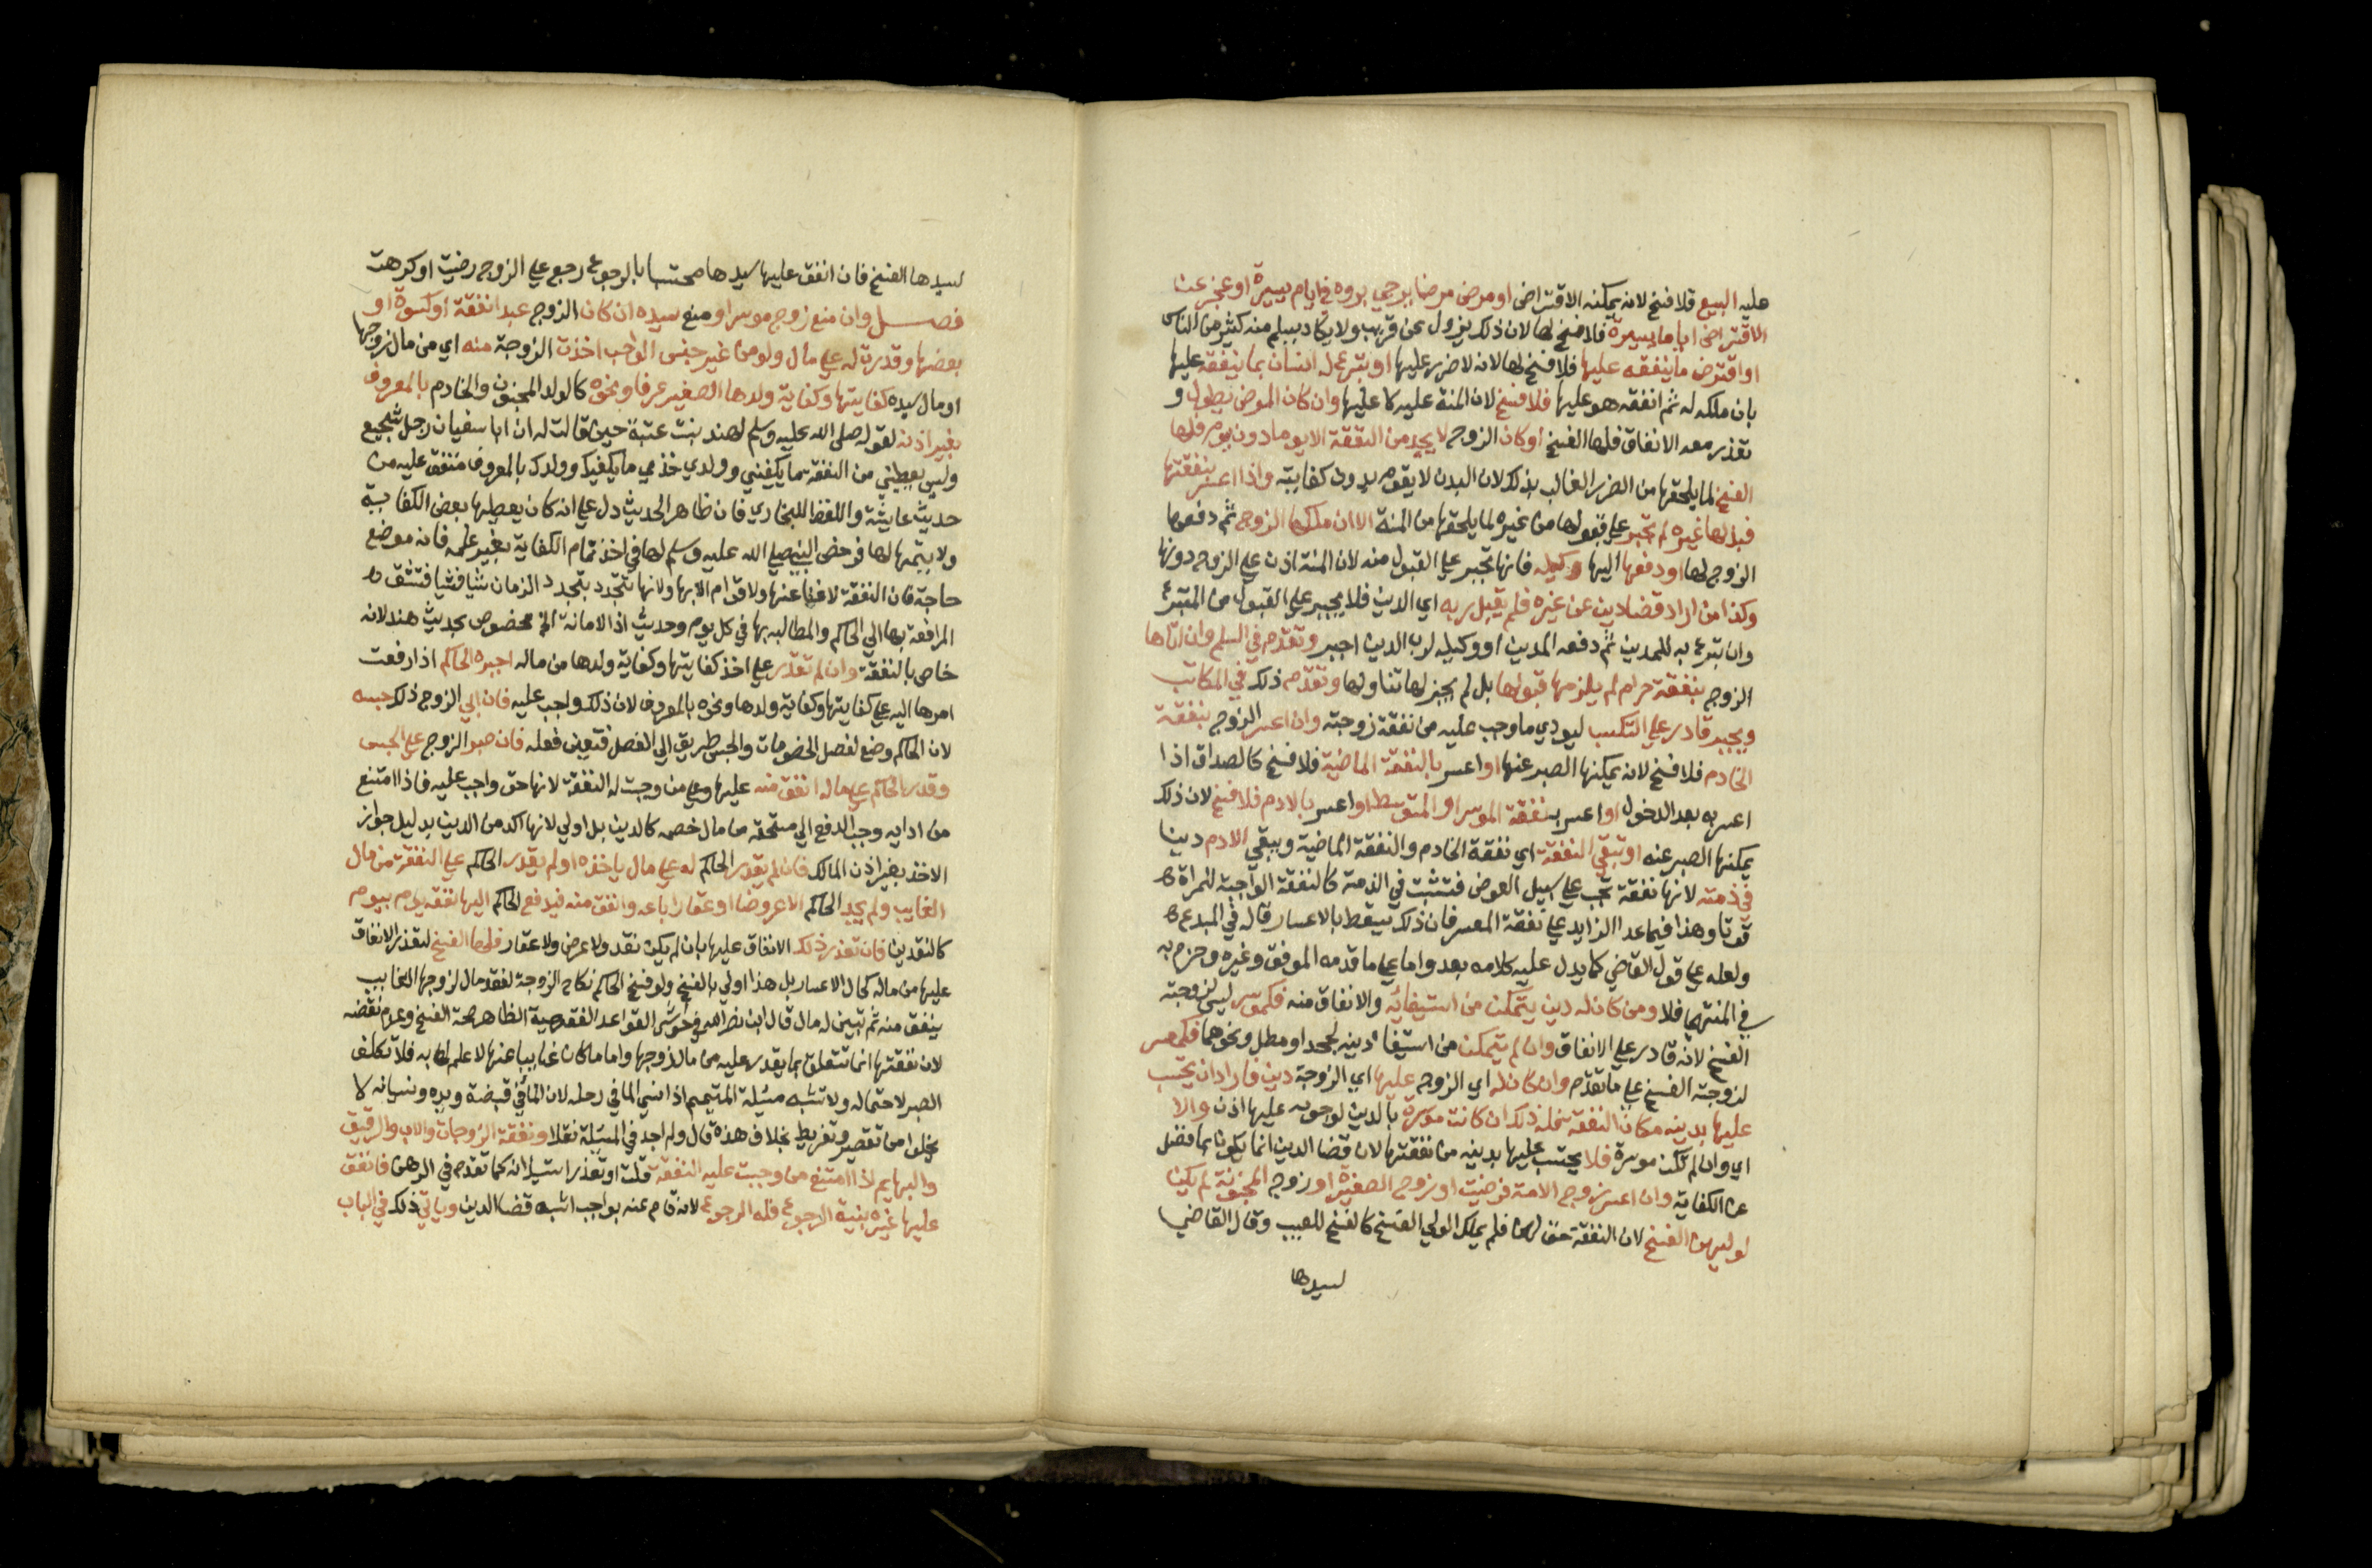 عليه البيع فلا فسخ لانه يمكنه الاقتراض او مرض مرضا يرجي بروه في ايام يسيرة او عجز عن
الاقتراض اياما يسيرة فلا فسخ لها لان ذلك يزول عن قريب ولا يكاد يسلم منه كثير من الناس
او اقترض ما ينفقه عليها فلا فسخ لها لانه لا ضرر عليها او تبرع له انسان بما ينفقه عليها
بان ملكه له ثم انفقه هو عليها فلا فسخ لان المنة عليه لا عليها وان كان المرض يطول و
تعذر معه الانفاق فلها الفسخ او كان الزوج لا يجد من النفقة الا يوما دون يوم فلها
الفسخ لما يلحقها من الضرر الغالب بذلك لان البدن لا يقوم بدون كفايته واذا اعسر بنفقتها
فبذلها غيره لم تجبر علي قبولها من غيره لما يلحقها من المنة الا ان ملكها الزوج ثم دفعها
الزوج لها او دفعها اليها وكيله فانها تجبر علي القبول منه لان المنة اذن علي الزوج دونها
وكذا من اراد قضا دين عن غيره فلم يقبل ربه اي الدين فلا يجبر علي القبول من المتبرع
وان تبرع به للمدين ثم دفعه المدين او وكيله لرب الدين اجبر وتقدم في السلم وان اتاها
الزوج بنفقة حرام لم يلزمها قبولها بل لم يجز لها تناولها وتقدم ذلك في المكاتب
ويجبر قادر علي التكسب ليودي ما وجب عليه من نفقة زوجته وان اعسر الزوج بنفقة
الخادم فلا فسخ لانه يمكنها الصبر عنها او اعسر بالنفقة الماضية فلا فسخ كالصداق اذا
اعسر به بعد الدخول او اعسر بنفقة الموسر او المتوسط او اعسر بالادم فلا فسخ لان ذلك
يمكنها الصبر عنه او تبقي النفقة اي نفقة الخادم والنفقة الماضية ويبقي الادم دينا
في ذمته لانها نفقة تجب علي سبيل العوض فتثبت في الذمة كالنفقة الواجبة للمراة
قوتا وهذا فيما عدا الزايد علي نفقة المعسر فان ذلك يسقط بالاعسار قاله في المبدع
ولعله علي قول القاضي كما يدل عليه كلامه بعد واما علي ما قدمه الموفق وغيره وجزم به
في المنتهي فلا ومن كان له دين يتمكن من استيفائه والانفاق منه فكموسر ليس لزوجته
الفسخ لانه قادر علي الانفاق وان لم يتمكن من استيفاء دينه لجحد او مطل ونحوهما فكمعسر
لزوجته الفسخ علي ما تقدم وان كان له اي الزوج عليها اي الزوجة دين فاراد ان يحتسب
عليها بدينه مكان النفقة فله ذلك ان كانت موسرة بالدين لوجوبه عليها اذن والا
اي وان لم تكن موسرة فلا يحتسب عليها بدينه من نفقتها لان قضا الدين انما يكون بما فضل
عن الكفاية وان اعسر زوج الامة فرضيت او زوج الصغيرة او زوج المجنونة لم يكن
لوليهن الفسخ لان النفقة حق لهن فلم يملك الولي الفسخ كالفسخ للعيب وقال القاضي
لسيدها
لسيدها الفسخ فان انفق عليها سيدها محتسبا بالرجوع رجع علي الزوج رضيت او كرهت
فصل وان منع زوج موسر او منع سيده ان كان الزوج عبدا نفقة او كسوة او
بعضها وقدرت له علي مال ولو من غير جنس الواجب اخذت الزوجة منه اي من مال زوجها
او مال سيده كفايتها وكفاية ولدها الصغير عرفا ونحوه كالولد المجنون والخادم بالمعروف
بغير اذنه لقوله صلى الله عليه وسلم لهند بنت عتبة حين قالت له ان ابا سفيان رجل شحيح
وليس يعطيني من النفقة ما يكفيني وولدي خذي ما يكفيك وولدك بالمعروف متفق عليه من
حديث عايشة واللفظ للبخاري فان ظاهر الحديث دل علي انه كان يعطيها بعض الكفاية
ولا يتمها لها فرخص النبي صلي الله عليه وسلم لها في اخذ تمام الكفاية بغير علمه فانه موضع
حاجة فان النفقة لا غنا عنها ولا قوام الا بها ولانها تتجدد بتجدد الزمان شيا فشيا فتشق
المرافعة بها الي الحاكم والمطالبه بها في كل يوم وحديث اذ الامانة الخ مخصوص بحديث هند لانه
خاص بالنفقة وان لم تقدر علي اخذ كفايتها وكفاية ولدها من ماله اجبره الحاكم اذا رفعت
امرها اليه علي كفايتها وكفاية ولدها ونحوه بالمعروف لان ذلك واجب عليه فان ابي الزوج ذلك حبسه
لان الحاكم وضع لفصل الخصومات والحبس طريق الي الفصل فتعين فعله فان صبر الزوج علي الحبس
وقدر الحاكم علي ماله انفق منه عليها وعلي من وجبت له النفقة لانها حق واجب عليه فاذا امتنع
من ادايه وجب الدفع الي مستحقه من مال خصمه كالدين بل اولي لانها اكد من الدين بدليل جواز
الاخذ بغير اذن المالك فان لم يقدر الحاكم له علي مال ياخذه او لم يقدر الحاكم علي النفقة من مال
الغايب ولم يجد الحاكم الا عروضا او عقارا باعه وانفق منه فيدفع الحاكم اليها نفقة يوم بيوم
كالنقدين فان تعذر ذلك الانفاق عليها بان لم يكن نقد ولا عرض ولا عقار فلها الفسخ لتعذر الانفاق
عليها من ماله كحال الاعسار بل هذا اولي بالفسخ ولو فسخ الحاكم نكاح الزوجة لفقد مال لزوجها الغايب
ينفق منه ثم تبين له مال قال ابن نصر الله في حواشي القواعد الفقهية الظاهر صحة الفسخ وعدم نقضه
لان نفقتها انما تتعلق بما يقدر عليه من مال زوجها واما ما كان غايبا عنها لا علم لها به فلا تكلف
الصبر لاحتماله ولا تشبه مسئلة المتيمم اذا نسي الما في رحله لان الما في قبضة ويده ونسيانه لا
يخلوا من تقصير وتفريط بخلاف هذه قال ولم اجد في المسئلة نقلا ونفقة الزوجات والاب والرقيق
والبهايم اذا امتنع من وجبت عليه النفقة قلت او تعذر استيذانه كما تقدم في الرهن فانفق
عليها غيره بنية الرجوع فله الرجوع لانه قام عنه بواجب اشبه قضا الدين وياتي ذلك في الباب